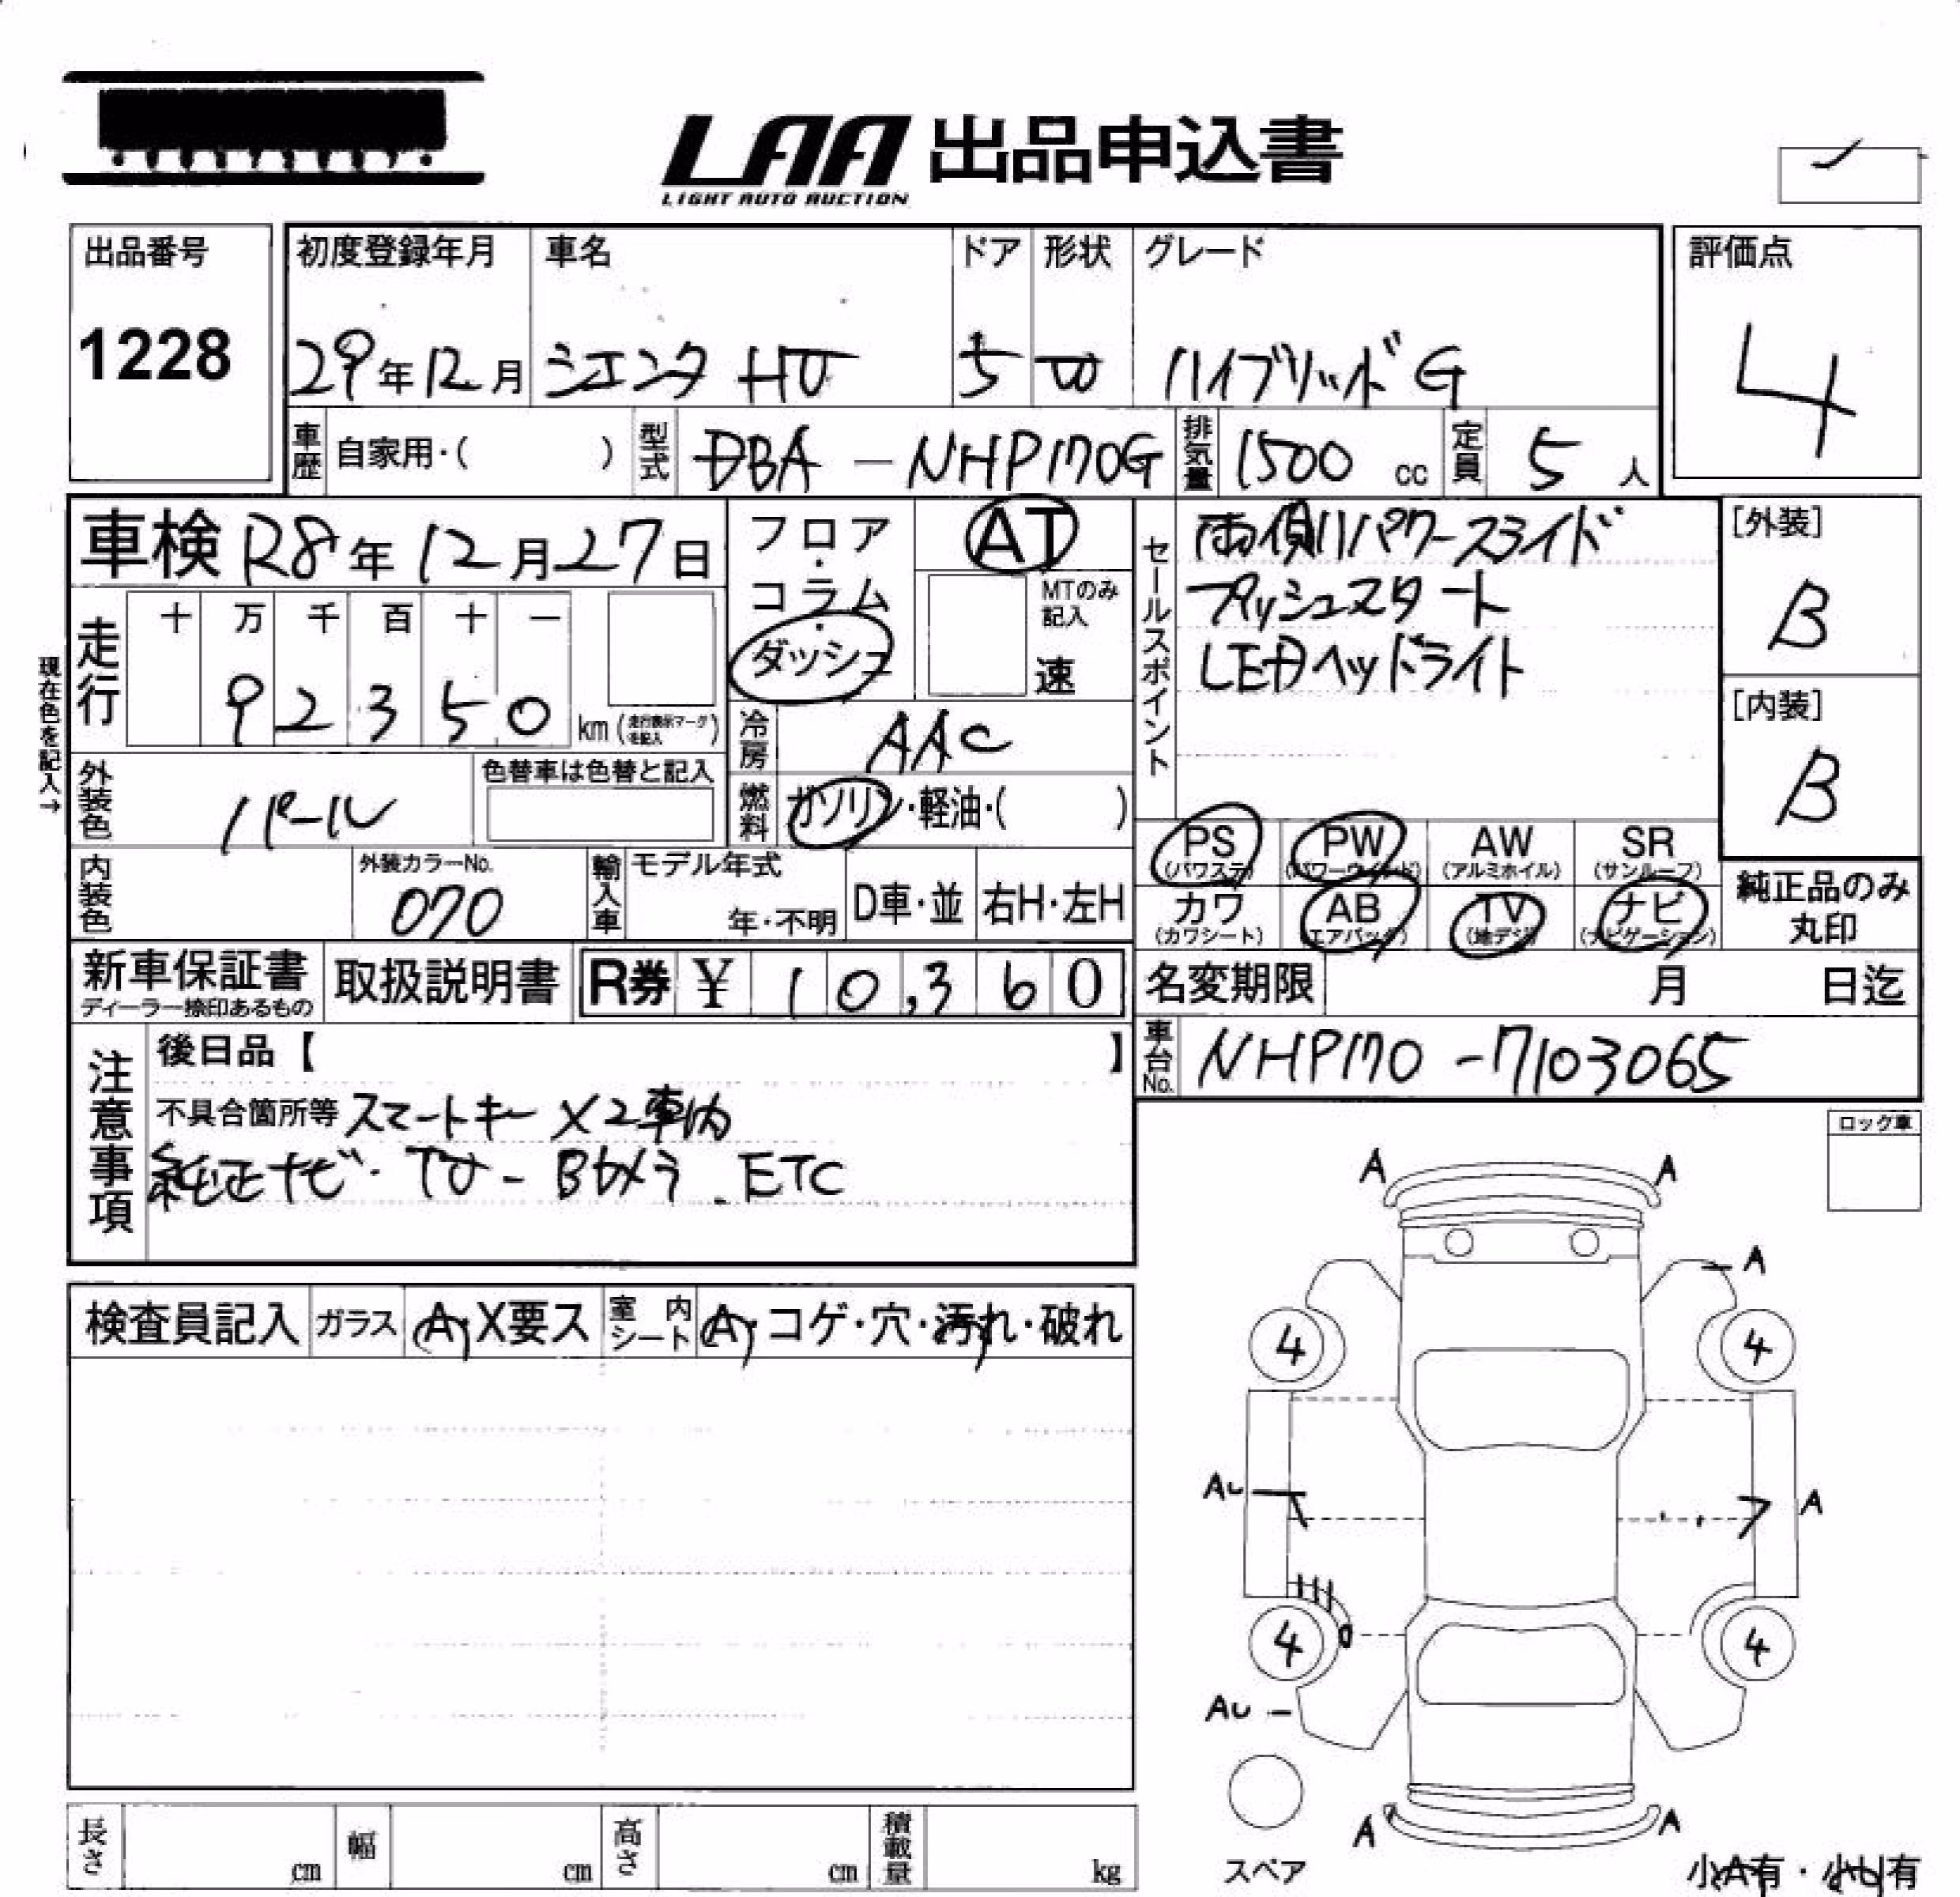 LAA 出品申込書
LIGHT AUTO AUCTION
出品番号
1228
初度登録年月 車名 ドア 形状 グレード
29年12月 シエンタ HV 5 W ハイブリッドG
評価点
4
車歴 自家用・( ) 型式 DBA - NHP170G 排気量 1500 cc 定員 5 人
車検 R8年12月27日
フロア・コラム・ダッシュ
AT
MTのみ記入
速
走行 十 万 千 百 十 一
9 2 3 5 0 km (走行表示マークを記入)
現在色を記入→
冷房 AAC
燃料 ガソリン・軽油・( )
外装色 パール
色替車は色替と記入
内装色
外装カラーNo.
070
輸入車 モデル年式
年・不明 D車・並 右H・左H
セールスポイント
両側パワースライド
プッシュスタート
LEDヘッドライト
[外装]
B
[内装]
B
PS (パワステ) PW (パワーウィンド) AW (アルミホイル) SR (サンルーフ)
カワ (カワシート) AB (エアバッグ) TV (地デジ) ナビ (ナビゲーション)
純正品のみ
丸印
新車保証書
ディーラー捺印あるもの
取扱説明書
R券 ¥ 10,360
名変期限 月 日迄
車台No. NHP170-7103065
注意事項
後日品【 】
不具合箇所等 スマートキー×2車内
純正ナビ・TV-Bカメラ.ETC
ロック車
検査員記入 ガラス A・X要ス 室内シート A・コゲ・穴・汚れ・破れ
A A
A
4 4
AU A
4 4
AU
A A
スペア
小A有・小U有
長さ cm 幅 cm 高さ cm 積載量 kg